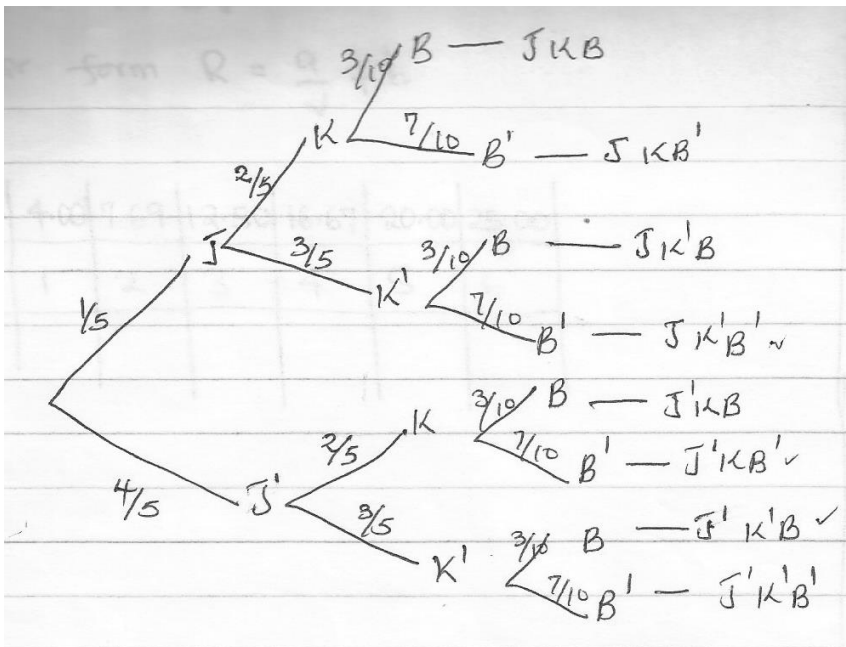 3/10 B — JKB
K 7/10 B' — JKB'
2/5
J 3/5 K' 3/10 B — JK'B
1/5 7/10 B' — JK'B' ✓
3/10 B — J'KB
2/5 K 7/10 B' — J'KB' ✓
4/5 J' 3/5 K' 3/10 B — J'K'B ✓
7/10 B' — J'K'B'